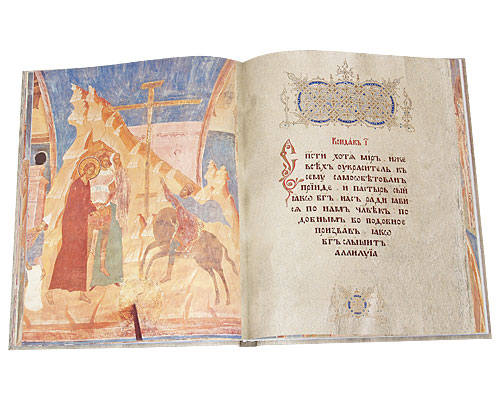 Кондакъ Ї
Сп҃сти хотѧ мїръ иже
всѣхъ оукраситель къ
семꙋ самоѡбѣтованъ
прїиде и пастырь сый
ꙗко бг҃ъ насъ ради ꙗви
сѧ по намъ чл҃вѣкъ по
добнымъ бо подобное
призвавъ ꙗко
бг҃ъ слышитъ
аллилꙋїа